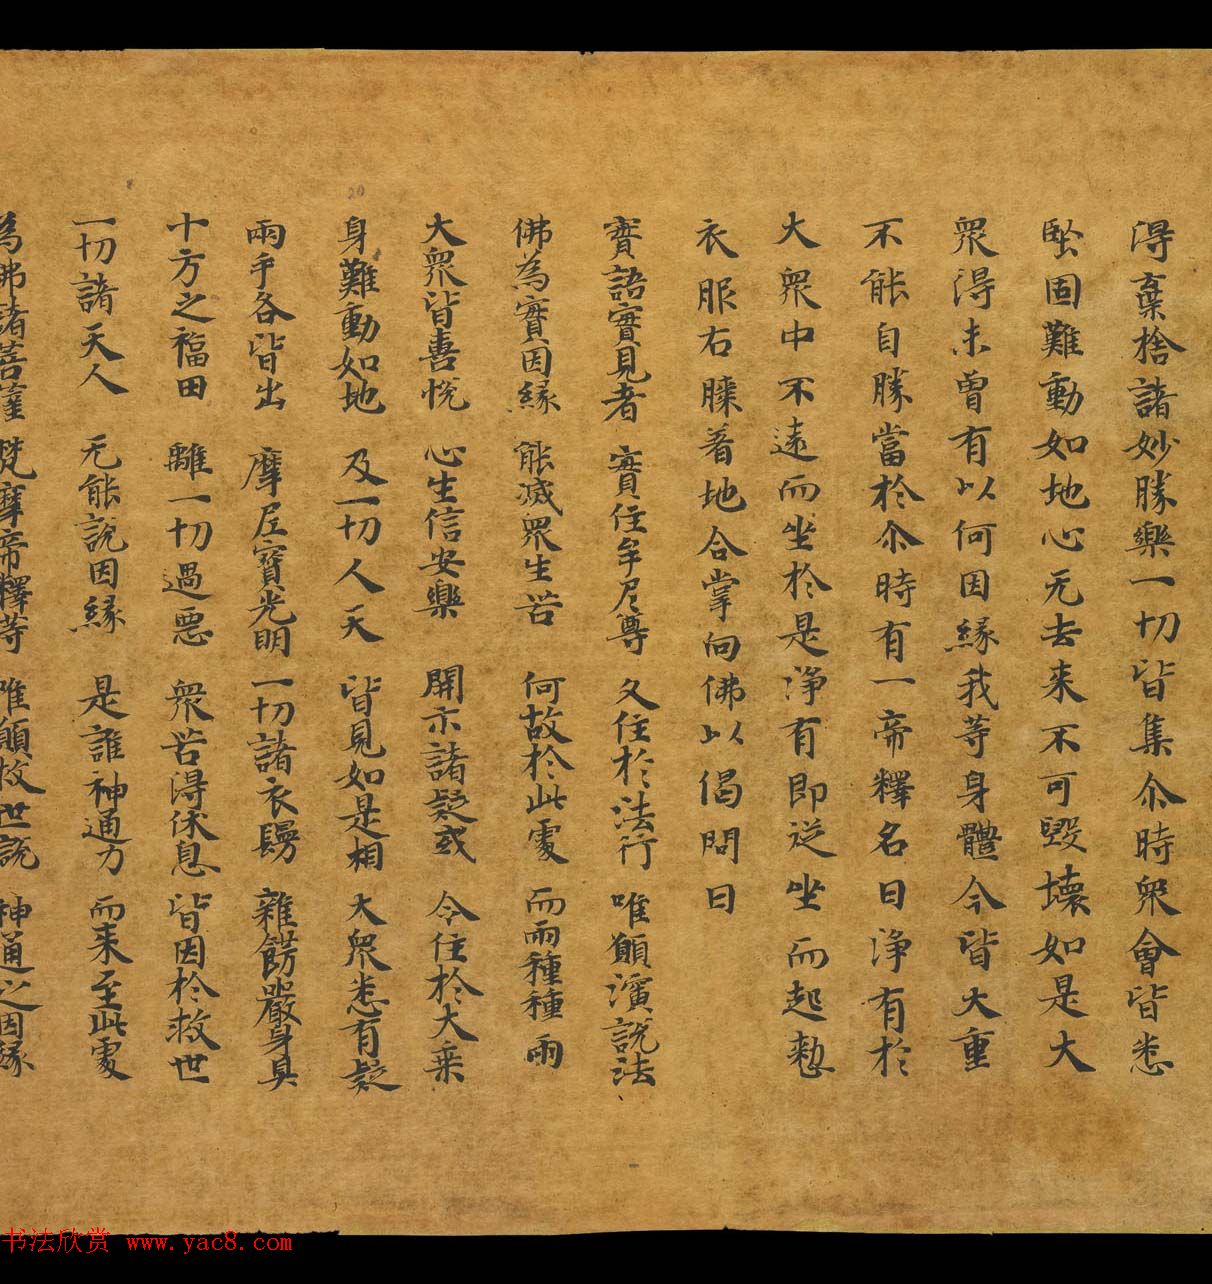 得棄捨諸妙勝樂一切皆集尒時眾會皆悉
堅固難動如地心无去来不可毀壞如是大
眾得未曾有以何因緣我等身體今皆大重
不能自勝當於尒時有一帝釋名曰淨有於
大眾中不遠而坐於是淨有即従坐而起整
衣服右膝著地合掌向佛以偈問曰
實語實見者 實住牟尼尊 久住於法行 唯願演說法
佛為實因緣 能滅眾生苦 何故於此處 而雨種種雨
大眾皆喜悅 心生信安樂 開示諸疑或 令住於大乘
身難動如地 及一切人天 皆見如是相 大眾悉有疑
兩手各皆出 摩尼寶光明 一切諸衣鬘 雜餝嚴身具
十方之福田 離一切過惡 眾苦得休息 皆因於救世
一切諸天人 无能說因緣 是誰神通力 而来至此處
為佛諸菩薩 梵摩帝釋等 唯願救世說 神通之因緣
20
书法欣赏 www.yac8.com